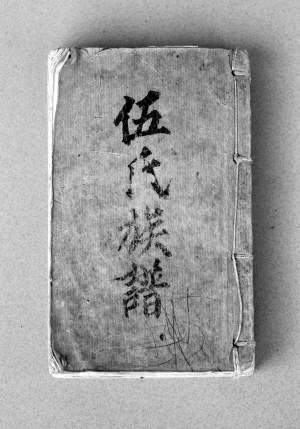 伍氏族譜